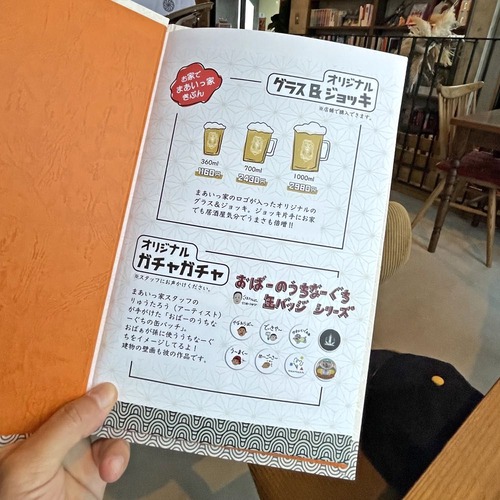 お家で
まあいっ家
きぶん
オリジナル
グラス&ジョッキ
※店舗で購入できます。
360ml
700ml
1000ml
1160円
2430円
2980円
まあいっ家のロゴが入ったオリジナルの
グラス&ジョッキ。ジョッキ片手にお家
でも居酒屋気分でうまさも倍増!!
オリジナル
ガチャガチャ
※スタッフにお声かけください。
まあいっ家スタッフの
りゅうたろう(アーティスト)
が手がけた「おばーのうちな
ーぐちの缶バッチ」。
おばぁが孫に使ううちなーぐ
ちをイメージしてるよ!
建物の壁画も彼の作品です。
おばーのうちなーぐち
缶バッジ シリーズ